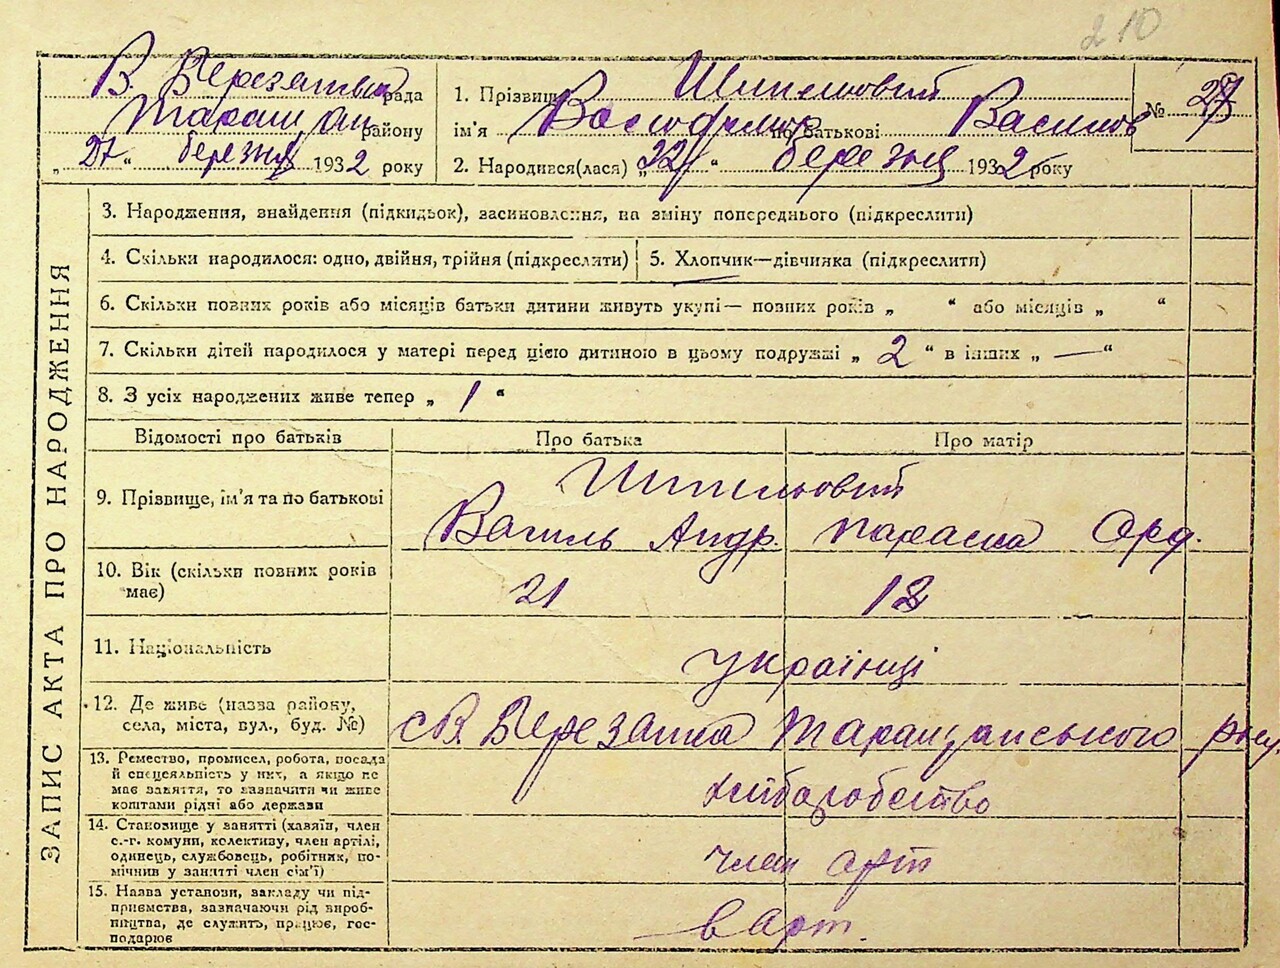 210
В. Березанська рада
Таращан. району
„27“ березня 1932 року
1. Прізвище Шпильовий
ім'я по батькові Васильов
№ 27
2. Народився(лася) „22“ березня 1932 року
ЗАПИС АКТА ПРО НАРОДЖЕННЯ
3. Народження, знайдення (підкидьок), засиновлення, на зміну попереднього (підкреслити)
4. Скільки народилося: одно, двійня, трійня (підкреслити)
5. Хлопчик—дівчинка (підкреслити)
6. Скільки повних років або місяців батьки дитини живуть укупі — повних років „ “ або місяців „ “
7. Скільки дітей народилося у матері перед цією дитиною в цьому подружжі „ 2 “ в інших „ — “
8. З усіх народжених живе тепер „ 1 “
Відомості про батьків
Про батька
Про матір
9. Прізвище, ім'я та по батькові
Шпильовий
Василь Андр.
Параска
10. Вік (скільки повних років
має)
21
18
11. Національність
українці
12. Де живе (назва району,
села, міста, вул., буд. №)
с В. Березанка Таращанського району
13. Ремество, промисел, робота, посада
й спеціяльність у них, а якщо не
має заняття, то зазначати чи живе
коштами рідні або держави
хліборобство
14. Становище у занятті (хазяїн, член
с.-г. комуни, колективу, член артілі,
одинець, службовець, робітник, по-
мічник у занятті член сім'ї)
член арт
15. Назва установи, закладу чи під-
приємства, зазначаючи рід вироб-
ництва, де служить, працює, гос-
подарює
в Арт.